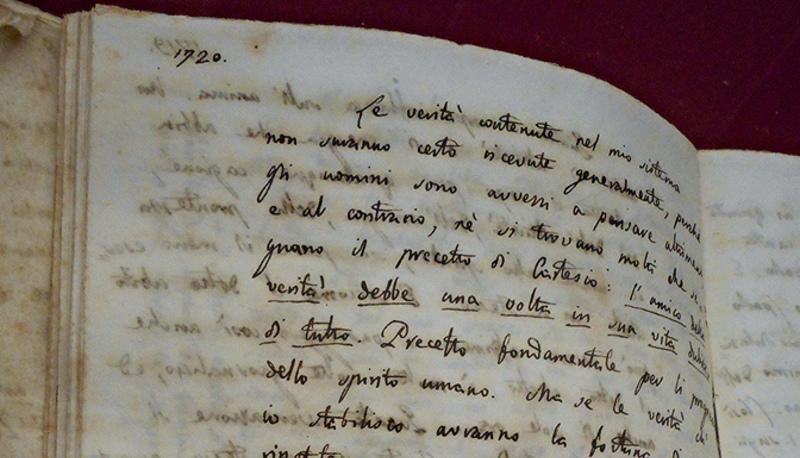 1720.
Le verità contenute nel mio sistema
non saranno certo ricevute generalmente, perchè
gli uomini sono avvezzi a pensare altrimenti
e al contrario, nè si trovano molti che se
guano il precetto di Cartesio: l'amico della
verità debbe una volta in sua vita dubitar
di tutto. Precetto fondamentale per li
dello spirito umano. Ma se le verità ch'
io stabilisco avranno la fortuna